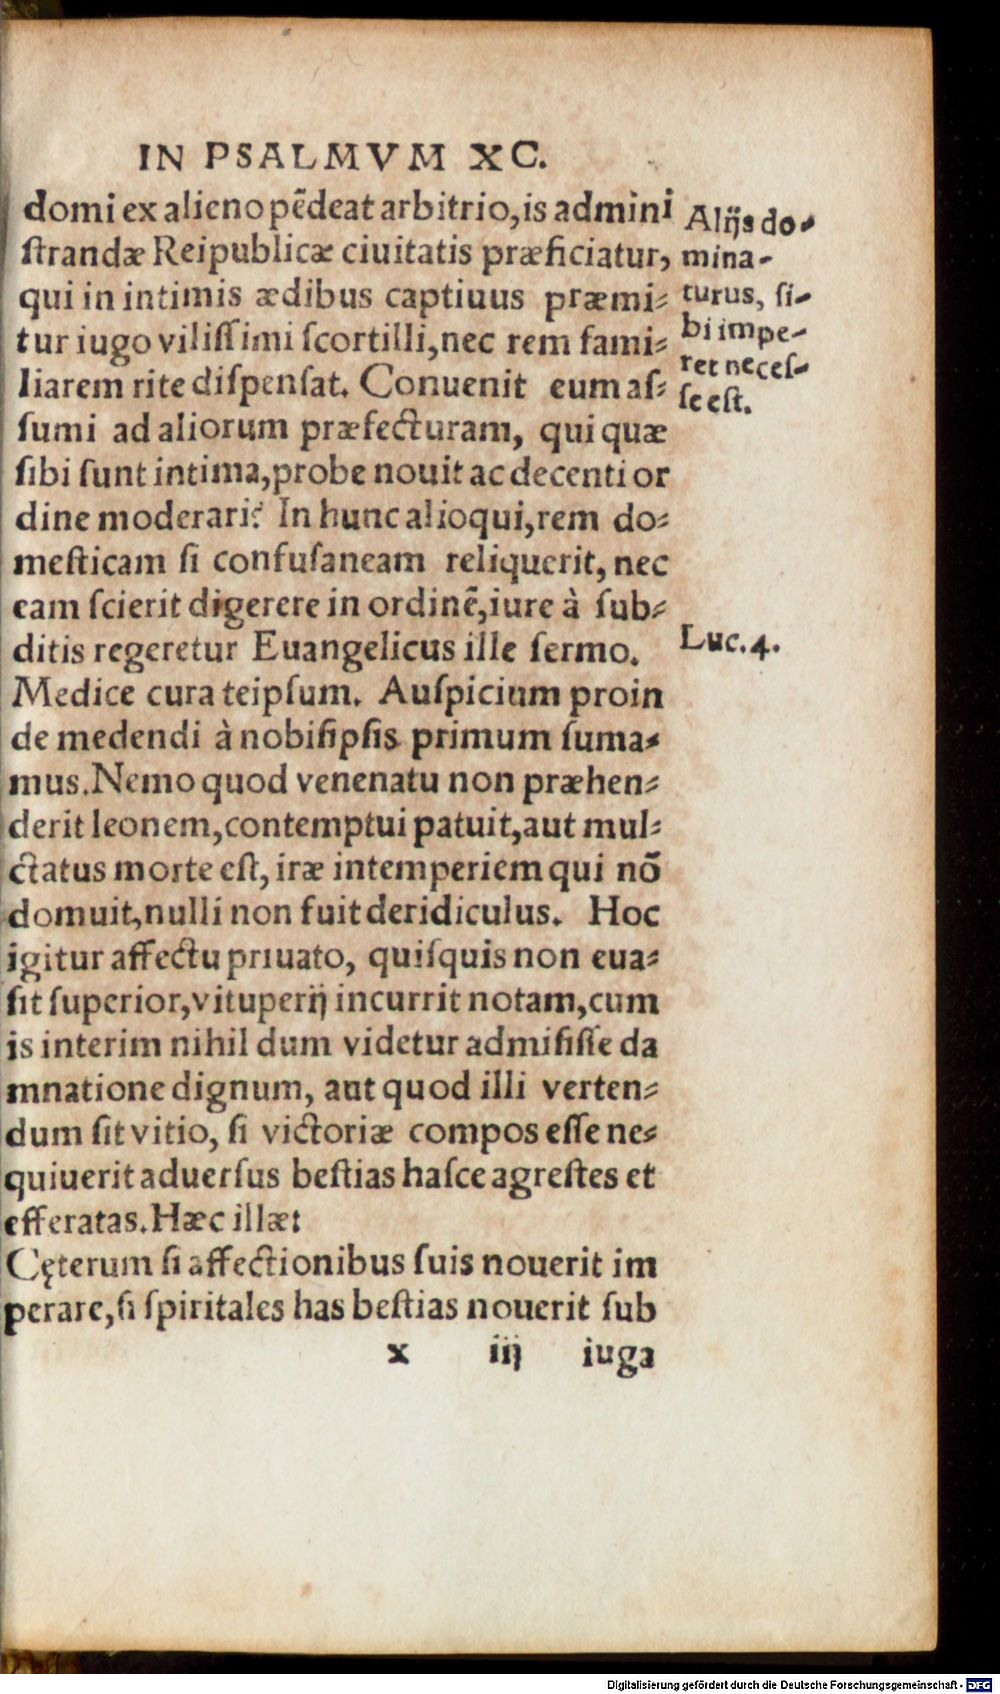 IN PSALMVM XC.
domi ex alieno pēdeat arbitrio, is admini
ſtrandæ Reipublicæ ciuitatis præficiatur,
qui in intimis ædibus captiuus præmi⸗
tur iugo viliſſimi ſcortilli, nec rem fami⸗
liarem rite diſpenſat. Conuenit eum aſ⸗
ſumi ad aliorum præfecturam, qui quæ
ſibi ſunt intima, probe nouit ac decenti or
dine moderari? In hunc alioqui, rem do⸗
meſticam ſi confuſaneam reliquerit, nec
eam ſcierit digerere in ordinē, iure à ſub⸗
ditis regeretur Euangelicus ille ſermo.
Medice cura teipſum. Auſpicium proin
de medendi à nobiſipſis primum ſuma⸗
mus. Nemo quod venenatu non præhen⸗
derit leonem, contemptui patuit, aut mul⸗
ctatus morte eſt, iræ intemperiem qui nō
domuit, nulli non fuit deridiculus. Hoc
igitur affectu priuato, quiſquis non eua⸗
ſit ſuperior, vituperij incurrit notam, cum
is interim nihil dum videtur admiſiſſe da
mnatione dignum, aut quod illi verten⸗
dum ſit vitio, ſi victoriæ compos eſſe ne⸗
quiuerit aduerſus beſtias haſce agreſtes et
efferatas. Hæc illæ:
Cęterum ſi affectionibus ſuis nouerit im
perare, ſi ſpiritales has beſtias nouerit ſub
x iij iuga
Alijs do⸗
mina-
turus, ſi⸗
bi impe-
ret neceſ⸗
ſe eſt.
Luc. 4.
Digitalisierung gefördert durch die Deutsche Forschungsgemeinschaft - DFG